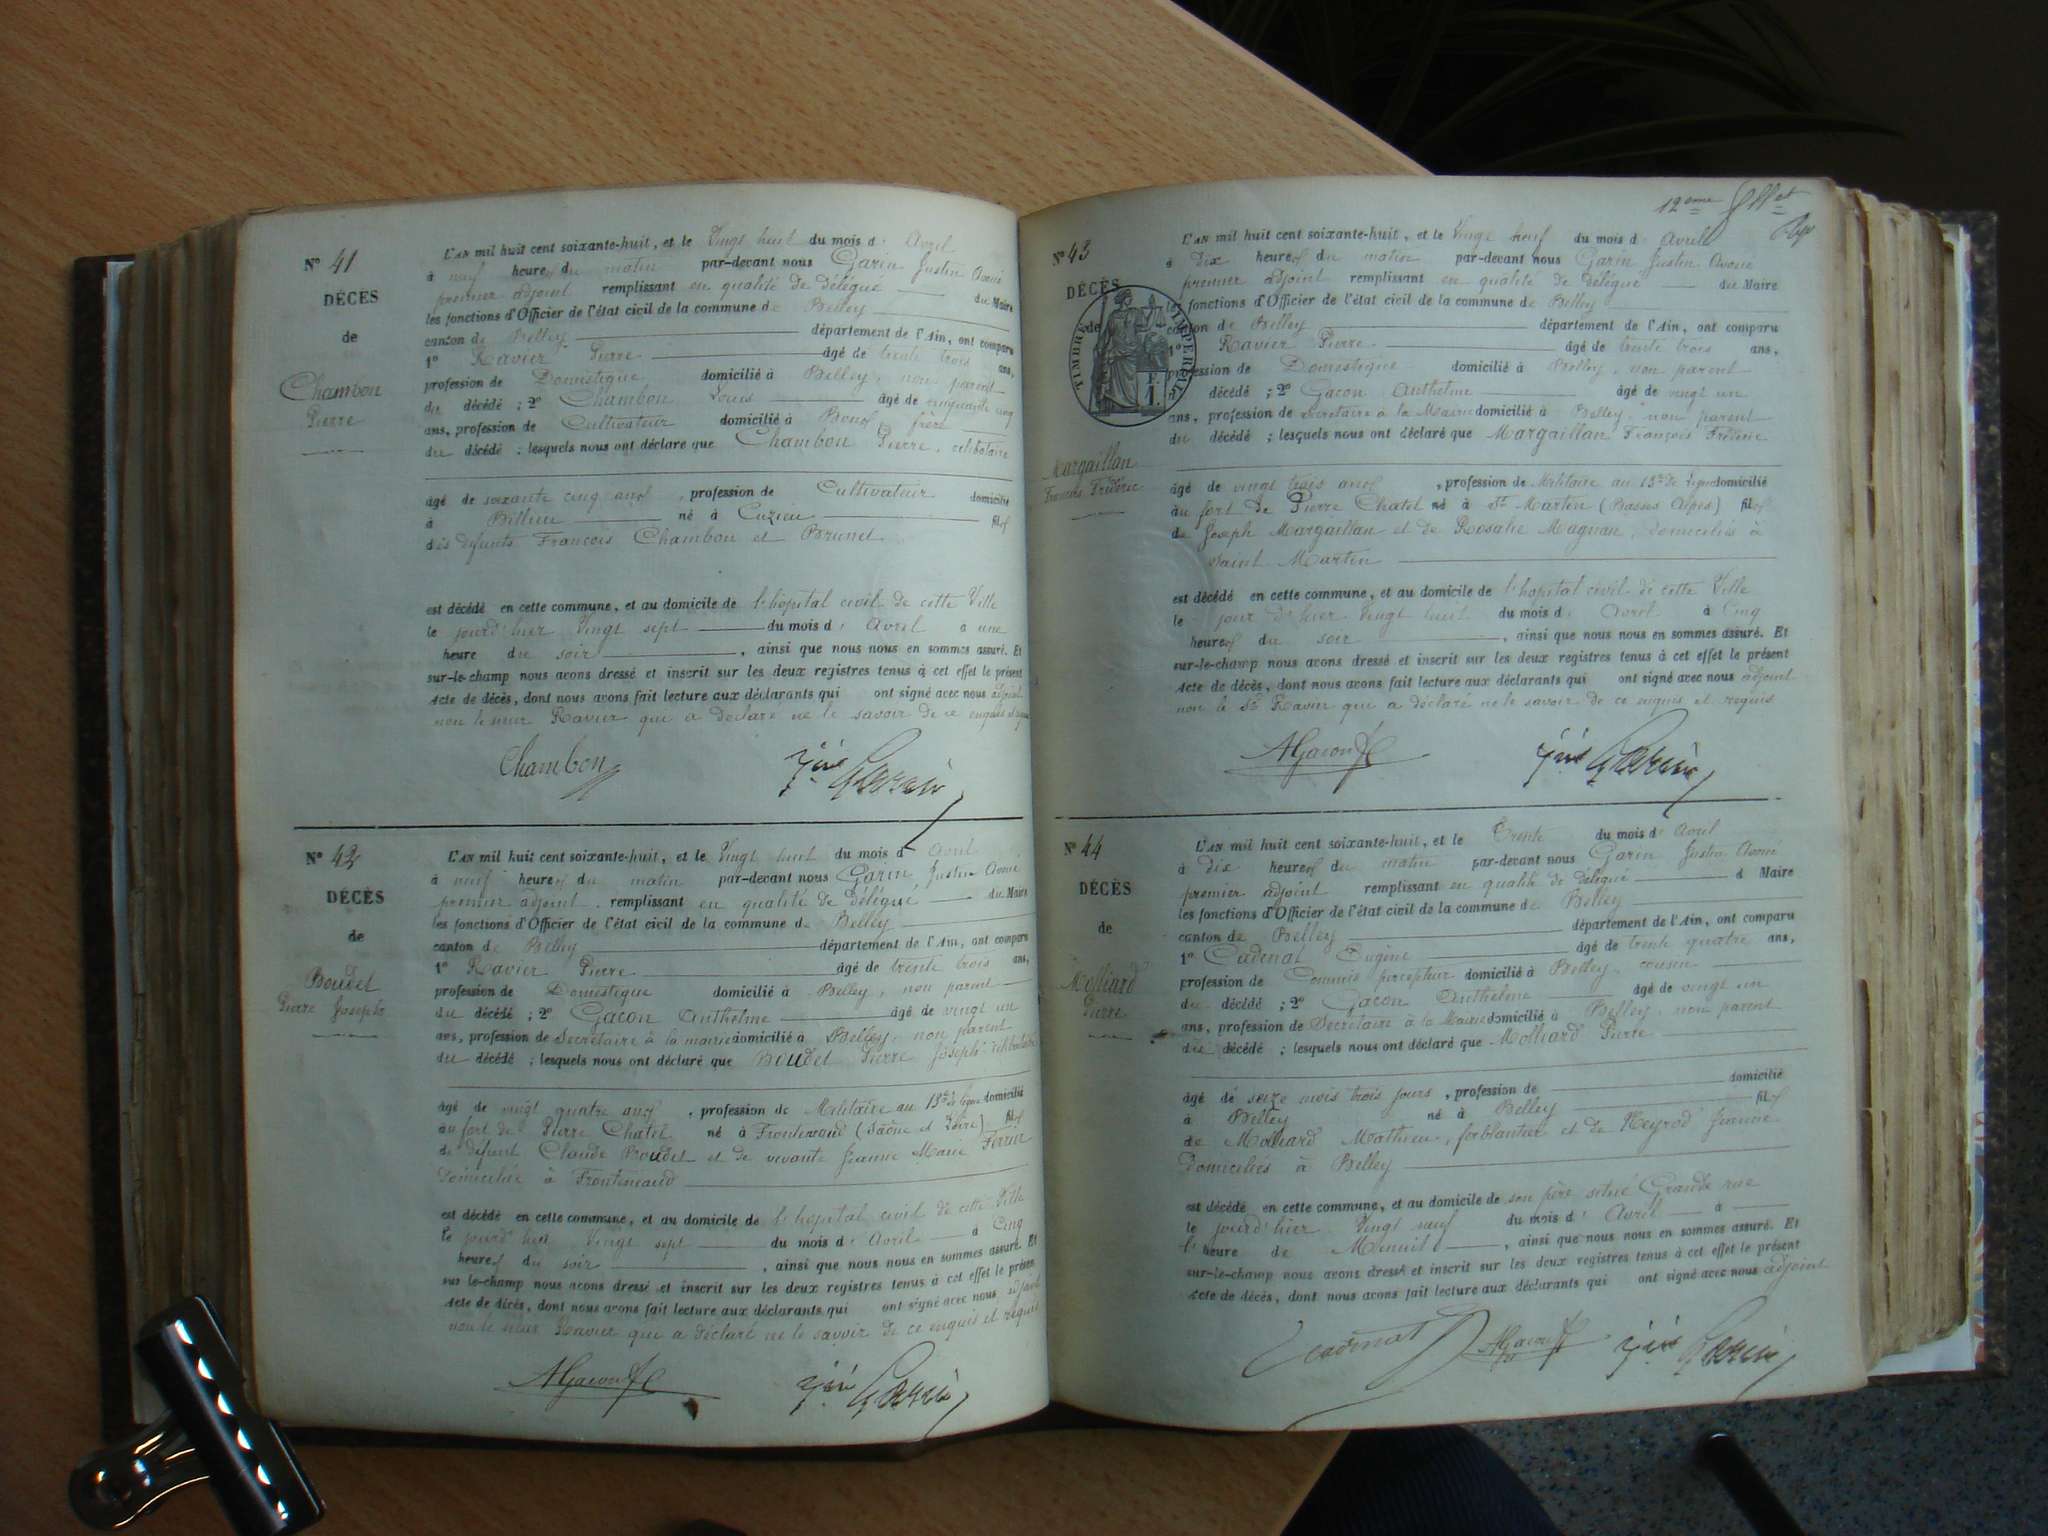 N° 41
DÉCÈS
de
Chambon
Pierre
L'AN mil huit cent soixante-huit, et le Vingt huit du mois d' Avril
à neuf heures du matin par-devant nous Garin Justin Avoué
premier adjoint remplissant en qualité de délégué du Maire
les fonctions d'Officier de l'état civil de la commune de Belley
canton de Belley département de l'Ain, ont comparu
1° Ravier Pierre âgé de trente trois ans,
profession de Domestique domicilié à Belley, non parent
du décédé ; 2° Chambon Louis âgé de cinquante cinq
ans, profession de Cultivateur domicilié à frère
du décédé ; lesquels nous ont déclaré que Chambon Pierre, célibataire
âgé de soixante cinq ans, profession de Cultivateur domicilié
à Billieu né à Cuzieu fils
des défunts François Chambon et Brunet
est décédé en cette commune, et au domicile de l'hôpital civil de cette Ville
le jour d'hier Vingt sept du mois d' Avril à une
heure du soir, ainsi que nous nous en sommes assuré. Et
sur-le-champ nous avons dressé et inscrit sur les deux registres tenus à cet effet le présent
Acte de décès, dont nous avons fait lecture aux déclarants qui ont signé avec nous adjoint
non le sieur Ravier qui a déclaré ne le savoir de ce enquis et requis
Chambon Garin
N° 42
DÉCÈS
de
Boudet
Pierre Joseph
L'AN mil huit cent soixante-huit, et le Vingt huit du mois d' Avril
à neuf heures du matin par-devant nous Garin Justin Avoué
premier adjoint remplissant en qualité de délégué du Maire
les fonctions d'Officier de l'état civil de la commune de Belley
canton de Belley département de l'Ain, ont comparu
1° Ravier Pierre âgé de trente trois ans,
profession de Domestique domicilié à Belley, non parent
du décédé ; 2° Gacon Anthelme âgé de vingt un
ans, profession de Secrétaire à la mairie domicilié à Belley, non parent
du décédé ; lesquels nous ont déclaré que Boudet Pierre Joseph célibataire
âgé de vingt quatre ans, profession de Militaire au 13me de ligne domicilié
au fort de Pierre Chatel né à Frontenaud (Saône et Loire) fils
de défunt Claude Boudet et de vivante Jeanne Marie Perrin
domiciliée à Frontenaud
est décédé en cette commune, et au domicile de l'hôpital civil de cette Ville
le jour d'hier Vingt sept du mois d' Avril à Cinq
heures du soir, ainsi que nous nous en sommes assuré. Et
sur-le-champ nous avons dressé et inscrit sur les deux registres tenus à cet effet le présent
Acte de décès, dont nous avons fait lecture aux déclarants qui ont signé avec nous adjoint
non le sieur Ravier qui a déclaré ne le savoir de ce enquis et requis
AGacon Garin
12eme fllet
N° 43
DÉCÈS
de
TIMBRE IMPERIAL
F. 1.
Margaillan
François Frédéric
L'AN mil huit cent soixante-huit, et le Vingt neuf du mois d' Avril
à dix heures du matin par-devant nous Garin Justin Avoué
premier adjoint remplissant en qualité de délégué du Maire
les fonctions d'Officier de l'état civil de la commune de Belley
canton de Belley département de l'Ain, ont comparu
1° Ravier Pierre âgé de trente trois ans,
profession de Domestique domicilié à Belley, non parent
décédé ; 2° Gacon Anthelme âgé de vingt un
ans, profession de secrétaire à la Mairie domicilié à Belley, non parent
du décédé ; lesquels nous ont déclaré que Margaillan François Frédéric
âgé de vingt trois ans, profession de Militaire au 13me de Ligne domicilié
au fort de Pierre Chatel né à St Martin (Basses Alpes) fils
de Joseph Margaillan et de Rosalie Magnan, domiciliés à
Saint Martin
est décédé en cette commune, et au domicile de l'hôpital civil de cette Ville
le jour d'hier Vingt huit du mois d' Avril à Cinq
heures du soir, ainsi que nous nous en sommes assuré. Et
sur-le-champ nous avons dressé et inscrit sur les deux registres tenus à cet effet le présent
Acte de décès, dont nous avons fait lecture aux déclarants qui ont signé avec nous adjoint
non le Sr Ravier qui a déclaré ne le savoir de ce enquis et requis
AGacon Garin
N° 44
DÉCÈS
de
Molliard
Pierre
L'AN mil huit cent soixante-huit, et le Trente du mois d' Avril
à dix heures du matin par-devant nous Garin Justin Avoué
premier adjoint remplissant en qualité de délégué d Maire
les fonctions d'Officier de l'état civil de la commune de Belley
canton de Belley département de l'Ain, ont comparu
1° Cadinat Eugène âgé de trente quatre ans,
profession de Commis percepteur domicilié à Belley, cousin
du décédé ; 2° Gacon Anthelme âgé de vingt un
ans, profession de Secrétaire à la Mairie domicilié à Belley, non parent
du décédé ; lesquels nous ont déclaré que Molliard Pierre
âgé de seize mois trois jours, profession de domicilié
à Belley né à Belley fils
de Molliard Mathieu, ferblantier et de Peyrod Jeannie
domiciliés à Belley
est décédé en cette commune, et au domicile de son père situé Grande rue
le jour d'hier Vingt neuf du mois d' Avril à
l'heure de Minuit, ainsi que nous nous en sommes assuré. Et
sur-le-champ nous avons dressé et inscrit sur les deux registres tenus à cet effet le présent
Acte de décès, dont nous avons fait lecture aux déclarants qui ont signé avec nous adjoint
Cadinat AGacon Garin